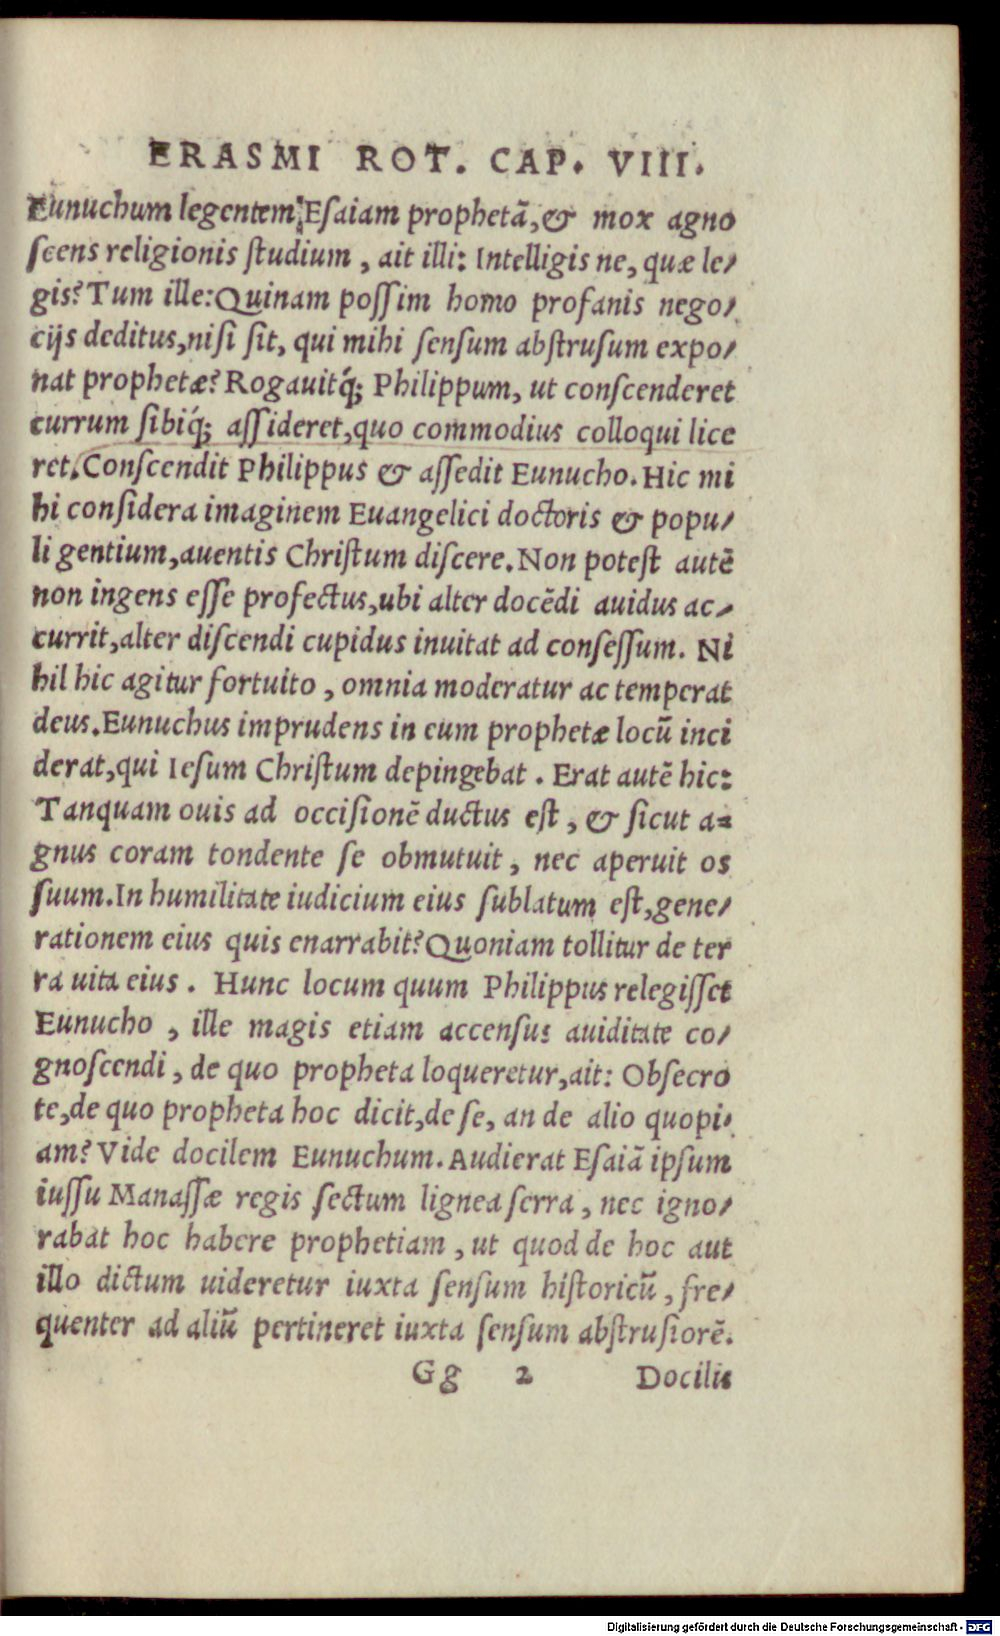 ERASMI ROT. CAP. VIII.
Eunuchum legentem Esaiam prophetã, & mox agno
scens religionis studium, ait illi: Intelligis ne, quæ le/
gis? Tum ille: Quinam possim homo profanis nego/
cijs deditus, nisi sit, qui mihi sensum abstrusum expo/
nat prophetæ? Rogauitq́; Philippum, ut conscenderet
currum sibiq́; assideret, quo commodius colloqui lice
ret. Conscendit Philippus & assedit Eunucho. Hic mi
hi considera imaginem Euangelici doctoris & popu/
li gentium, auentis Christum discere. Non potest autẽ
non ingens esse profectus, ubi alter docẽdi auidus ac/
currit, alter discendi cupidus inuitat ad consessum. Ni
hil hic agitur fortuito, omnia moderatur ac temperat
deus. Eunuchus imprudens in eum prophetæ locũ inci
derat, qui Iesum Christum depingebat. Erat autẽ hic:
Tanquam ouis ad occisionẽ ductus est, & sicut a=
gnus coram tondente se obmutuit, nec aperuit os
suum. In humilitate iudicium eius sublatum est, gene/
rationem eius quis enarrabit? Quoniam tollitur de ter
ra uita eius. Hunc locum quum Philippus relegisset
Eunucho, ille magis etiam accensus auiditate co/
gnoscendi, de quo propheta loqueretur, ait: Obsecro
te, de quo propheta hoc dicit, de se, an de alio quopi/
am? Vide docilem Eunuchum. Audierat Esaiã ipsum
iussu Manassæ regis sectum lignea serra, nec igno/
rabat hoc habere prophetiam, ut quod de hoc aut
illo dictum uideretur iuxta sensum historicũ, fre/
quenter ad aliũ pertineret iuxta sensum abstrusiorẽ.
Gg 2 Docilis
Digitalisierung gefördert durch die Deutsche Forschungsgemeinschaft - DFG